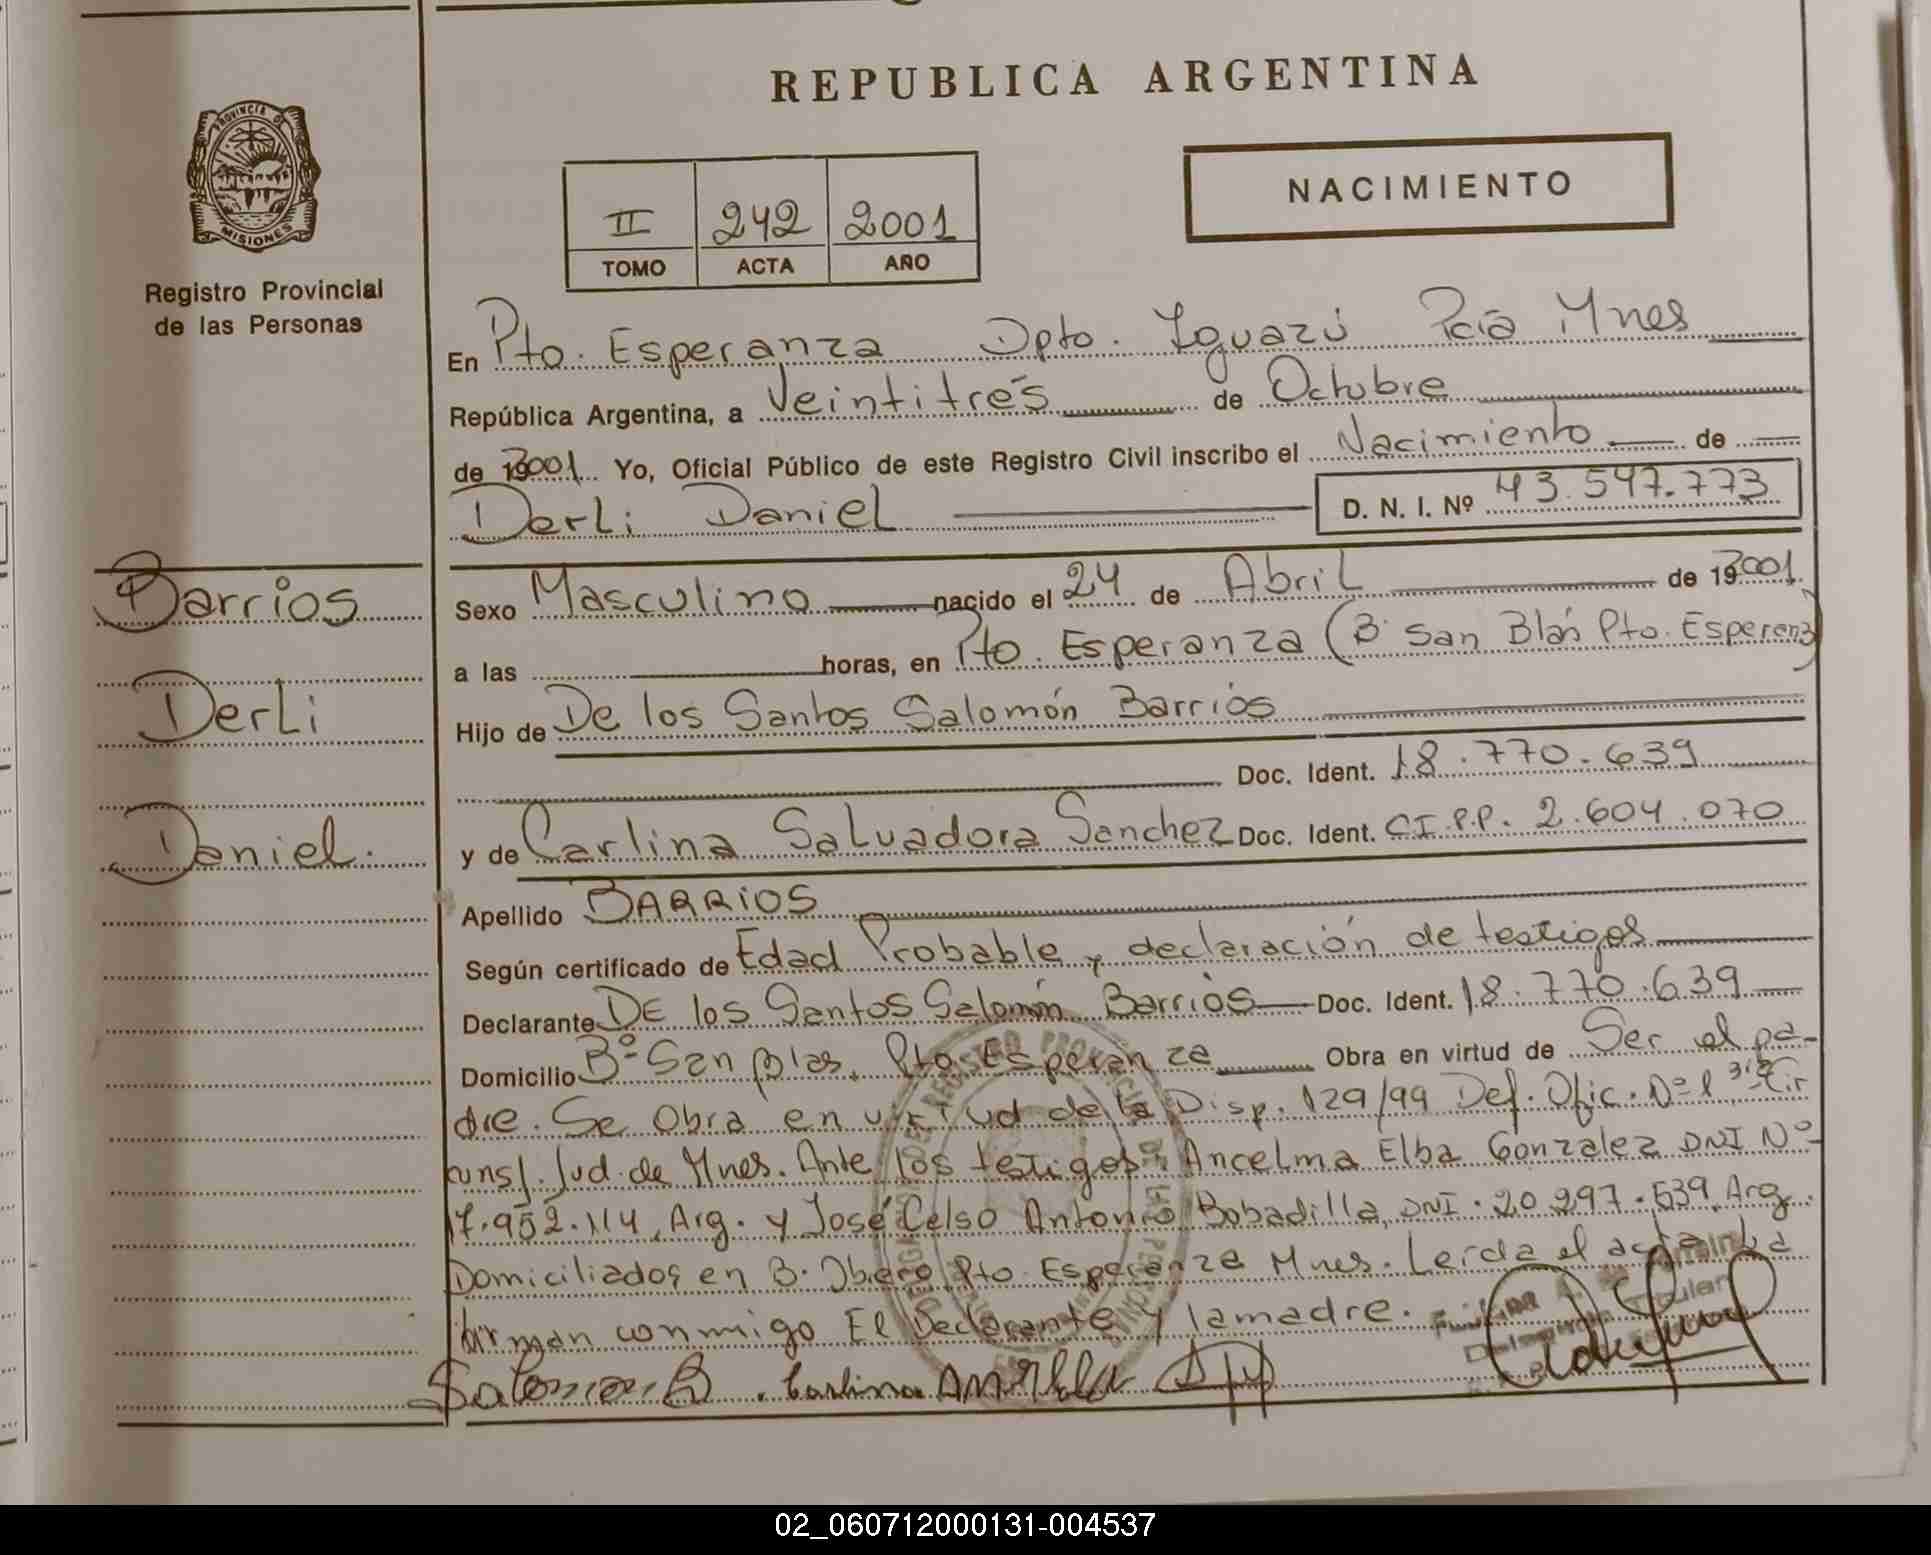 REPUBLICA ARGENTINA
PROVINCIA DE
MISIONES
Registro Provincial
de las Personas
II 242 2001
TOMO ACTA AÑO
NACIMIENTO
En Pto. Esperanza Dpto. Iguazú Pcia Mnes
República Argentina, a Veintitrés de Octubre
de 2001 Yo, Oficial Público de este Registro Civil inscribo el Nacimiento de
Derli Daniel D. N. I. Nº 43.547.773
Barrios
Derli
Daniel.
Sexo Masculino nacido el 24 de Abril de 19 2001
a las horas, en Pto. Esperanza (Bº San Blás Pto. Esperanz)
Hijo de De los Santos Salomón Barrios
Doc. Ident. 18.770.639
y de Carlina Salvadora Sanchez Doc. Ident. CI.P.P. 2.604.070
Apellido BARRIOS
Según certificado de Edad Probable y declaración de testigos
Declarante DE los Santos Salomón Barrios Doc. Ident. 18.770.639
Domicilio Bº San Blas, Pto Esperanza Obra en virtud de Ser el pa-
dre. Se Obra en virtud de la Disp. 129/99 Def. Ofic. Nº 1 3ra Cir
cunsj. Jud. de Mnes. Ante los testigos: Ancelma Elba Gonzalez DNI Nº
17.952.114, Arg. y José Celso Antonio Bobadilla, DNI. 20.297.539, Arg.
Domiciliados en B. Obrero Pto Esperanza Mnes. Leída el acta
firman conmigo El Declarante y la madre.
Salomon B. Carlina
02_060712000131-004537